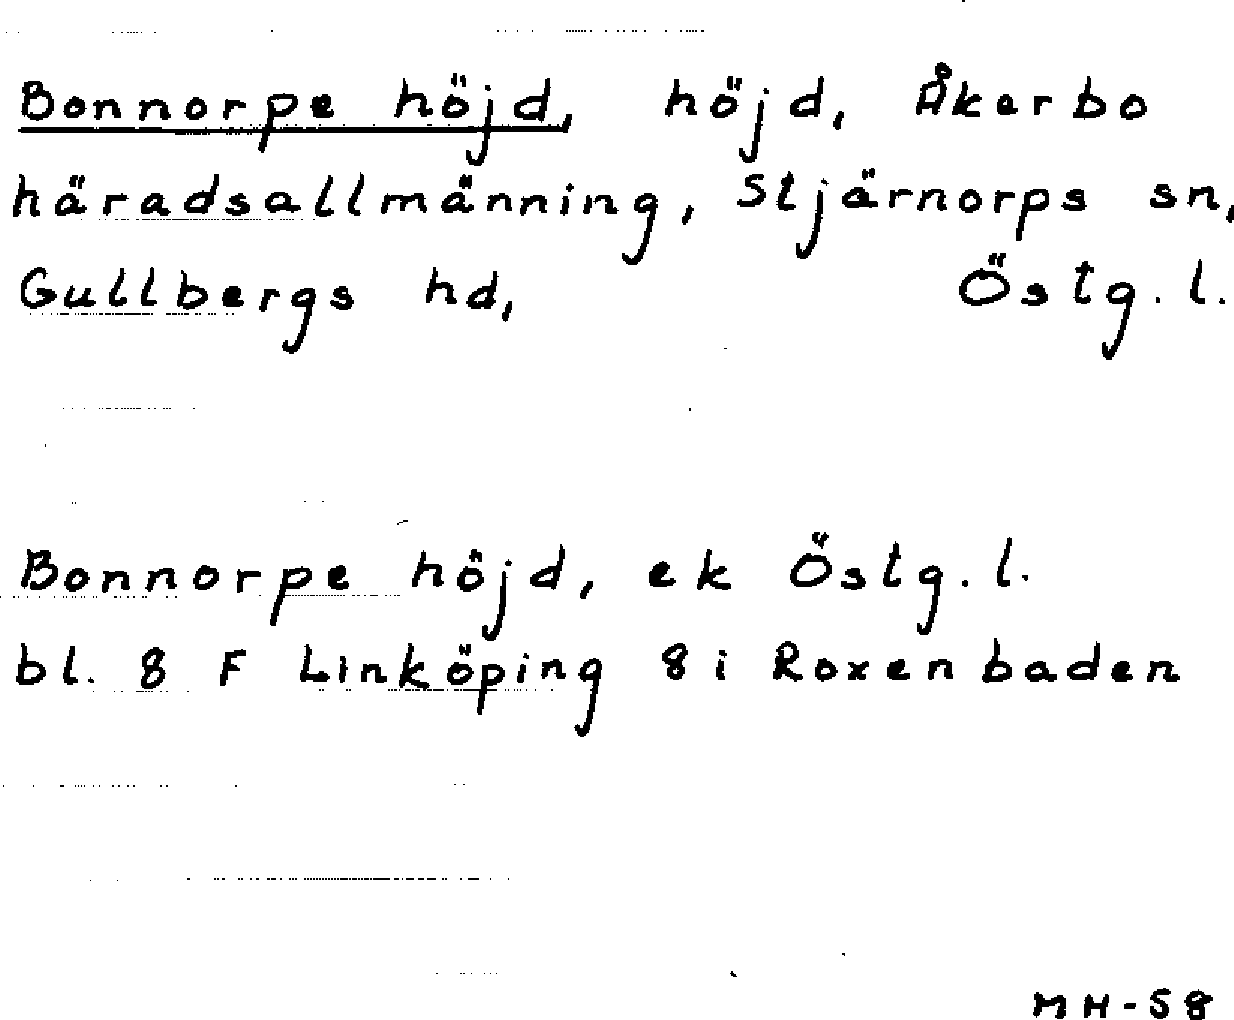 Bonnorpe höjd, höjd, Åkerbo
häradsallmänning, Stjärnorps sn,
Gullbergs hd, Östg. l.
Bonnorpe höjd, ek Östg. l.
bl. 8 F Linköping 8 i Roxenbaden
MH-58